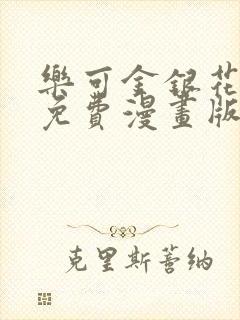 樂可金銀花
免費漫畫版
克里斯蒂納